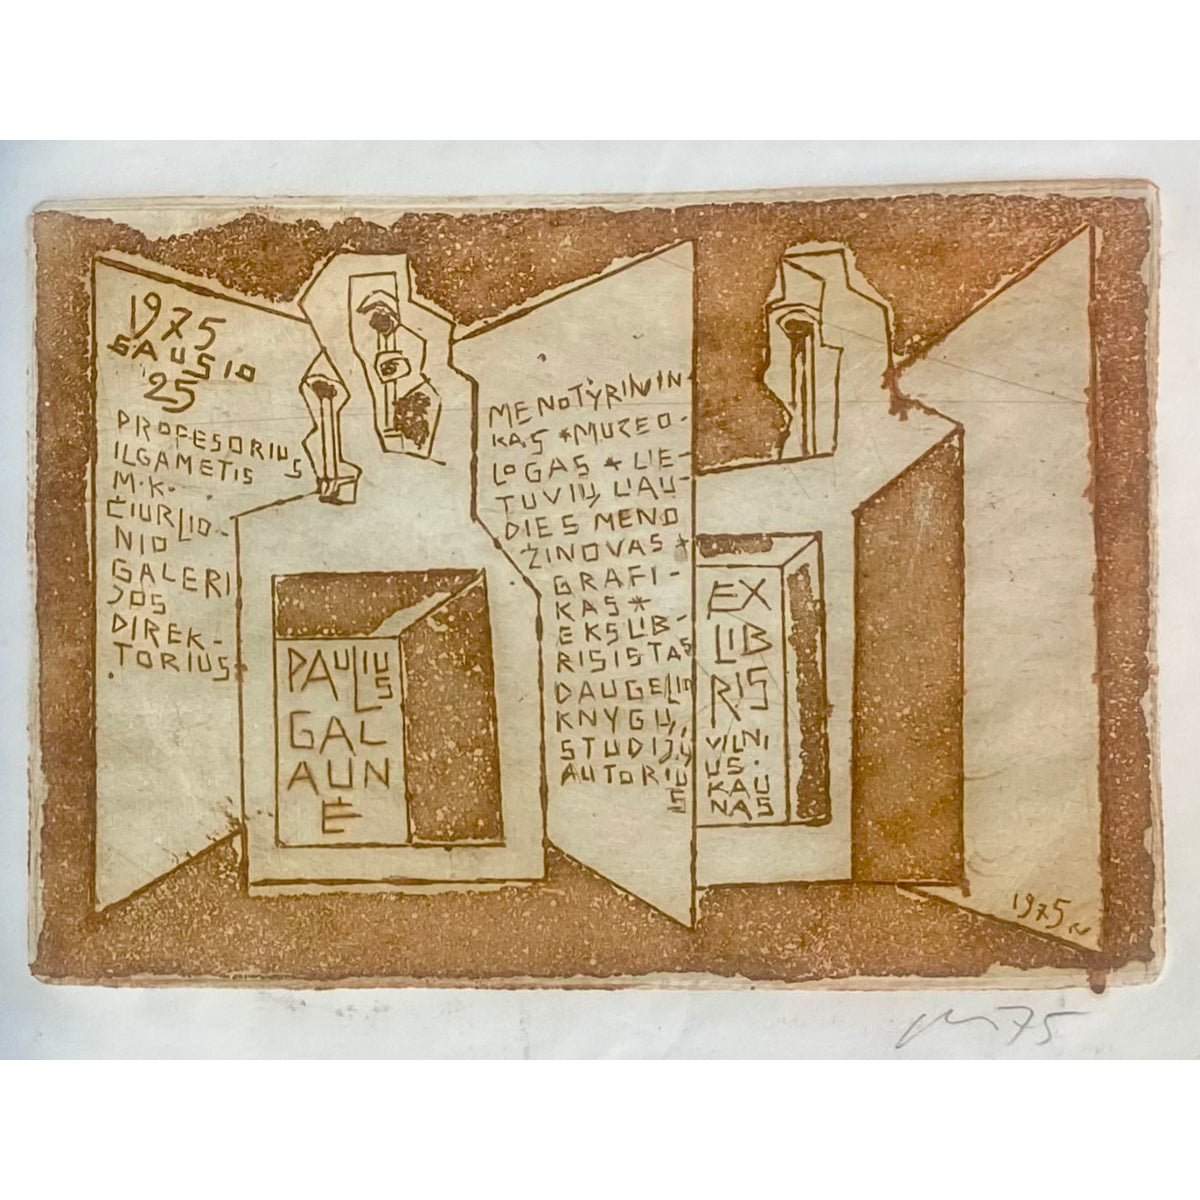 1975
GAUSIO
25
PROFESORIUS
ILGAMETIS
M.K.
ČIURLIO-
NIO
GALERI
JOS
DIREK-
TORIUS
PAULIUS
GAL
AUN
Ė
MENOTYRININ
KAS * MUZEO-
LOGAS * LIE-
TUVIŲ LIAU
DIES MENO
ŽINOVAS *
GRAFI-
KAS *
EKSLIB-
RISISTAS
DAUGELIO
KNYGŲ,
STUDIJŲ
AUTORIUS
EX
LIB
RIS
VILNI
US
KA
NAS
US
1975
75